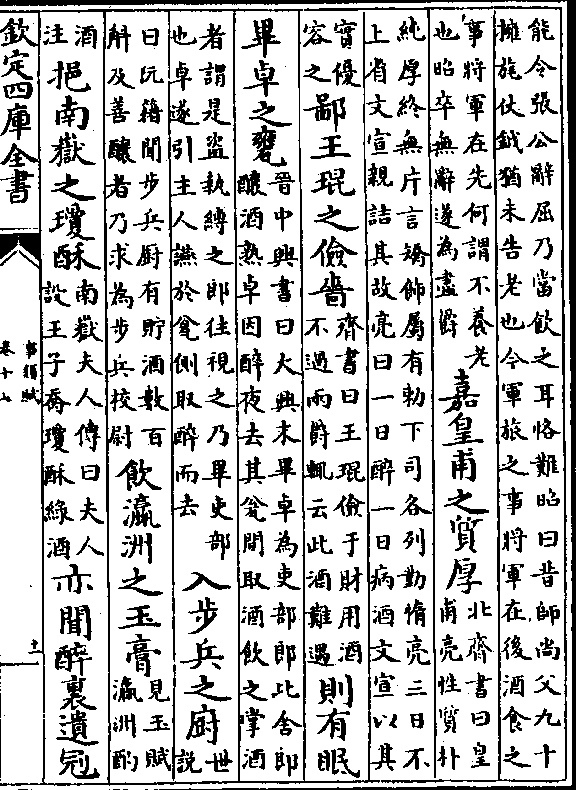 能令張公辭屈乃當飲之耳恪難昭曰昔師尚父九十
擁旄仗鉞猶未告老也今軍旅之事將軍在後酒食之
事將軍在先何謂不養老
也昭卒無辭遂為盡爵
嘉皇甫之質厚
北齊書曰皇
甫亮性質朴
純厚終無片言矯飾屬有勅下司各列勤惰亮三日不
上省文宣親詰其故亮曰一日醉一日病酒文宣以其
實優
容之
鄙王琨之儉嗇
齊書曰王琨儉于財用酒
不過兩爵輒云此酒難遇
則有眠
畢卓之甕
晉中興書曰大興末畢卓為吏部郎比舍郎
釀酒熟卓因醉夜去其甕間取酒飲之掌酒
者謂是盜執縛之郎往視之乃畢吏部
也卓遂引主人讌於甕側取醉而去
入步兵之廚
世
說
曰阮籍聞步兵廚有貯酒數百
斛及善釀者乃求為步兵校尉
飲瀛洲之玉膏
見玉賦
瀛洲酌
酒
注
挹南嶽之瓊酥
南嶽夫人傳曰夫人
設王子喬瓊酥綠酒
亦聞醉裏遺冠
欽定四庫全書
事類賦
卷十七
十一